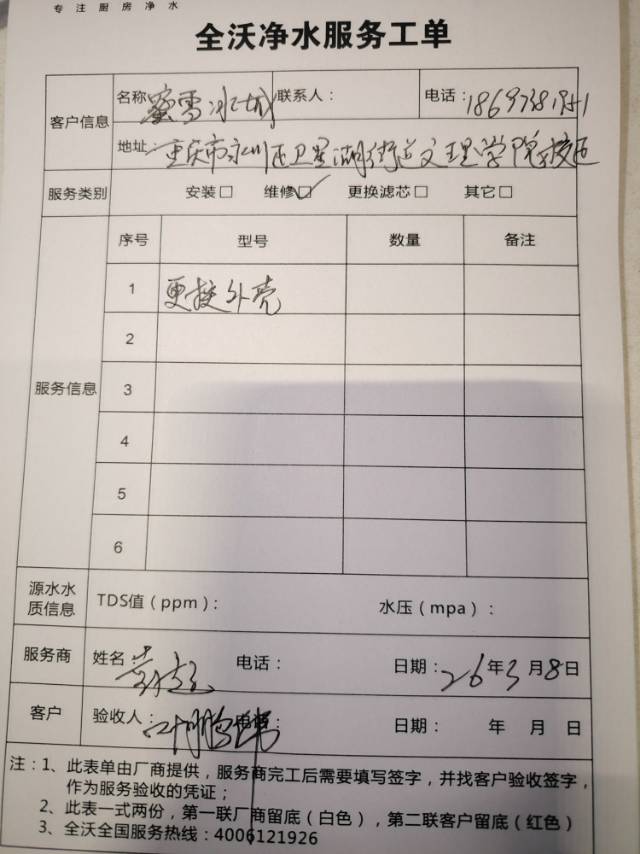 专注厨房净水
全沃净水服务工单
客户信息
名称 蜜雪冰城 联系人： 电话：
地址：重庆市永川区卫星湖街道文理学院校区
服务类别 安装□ 维修☑ 更换滤芯□ 其它□
服务信息
序号 型号 数量 备注
1 更换外壳
2
3
4
5
6
源水水质信息 TDS值（ppm）： 水压（mpa）：
服务商 姓名 电话： 日期：26年3月8日
客户 验收人： 日期： 年 月 日
注：1、此表单由厂商提供，服务商完工后需要填写签字，并找客户验收签字，
作为服务验收的凭证；
2、此表一式两份，第一联厂商留底（白色），第二联客户留底（红色）
3、全沃全国服务热线：4006121926